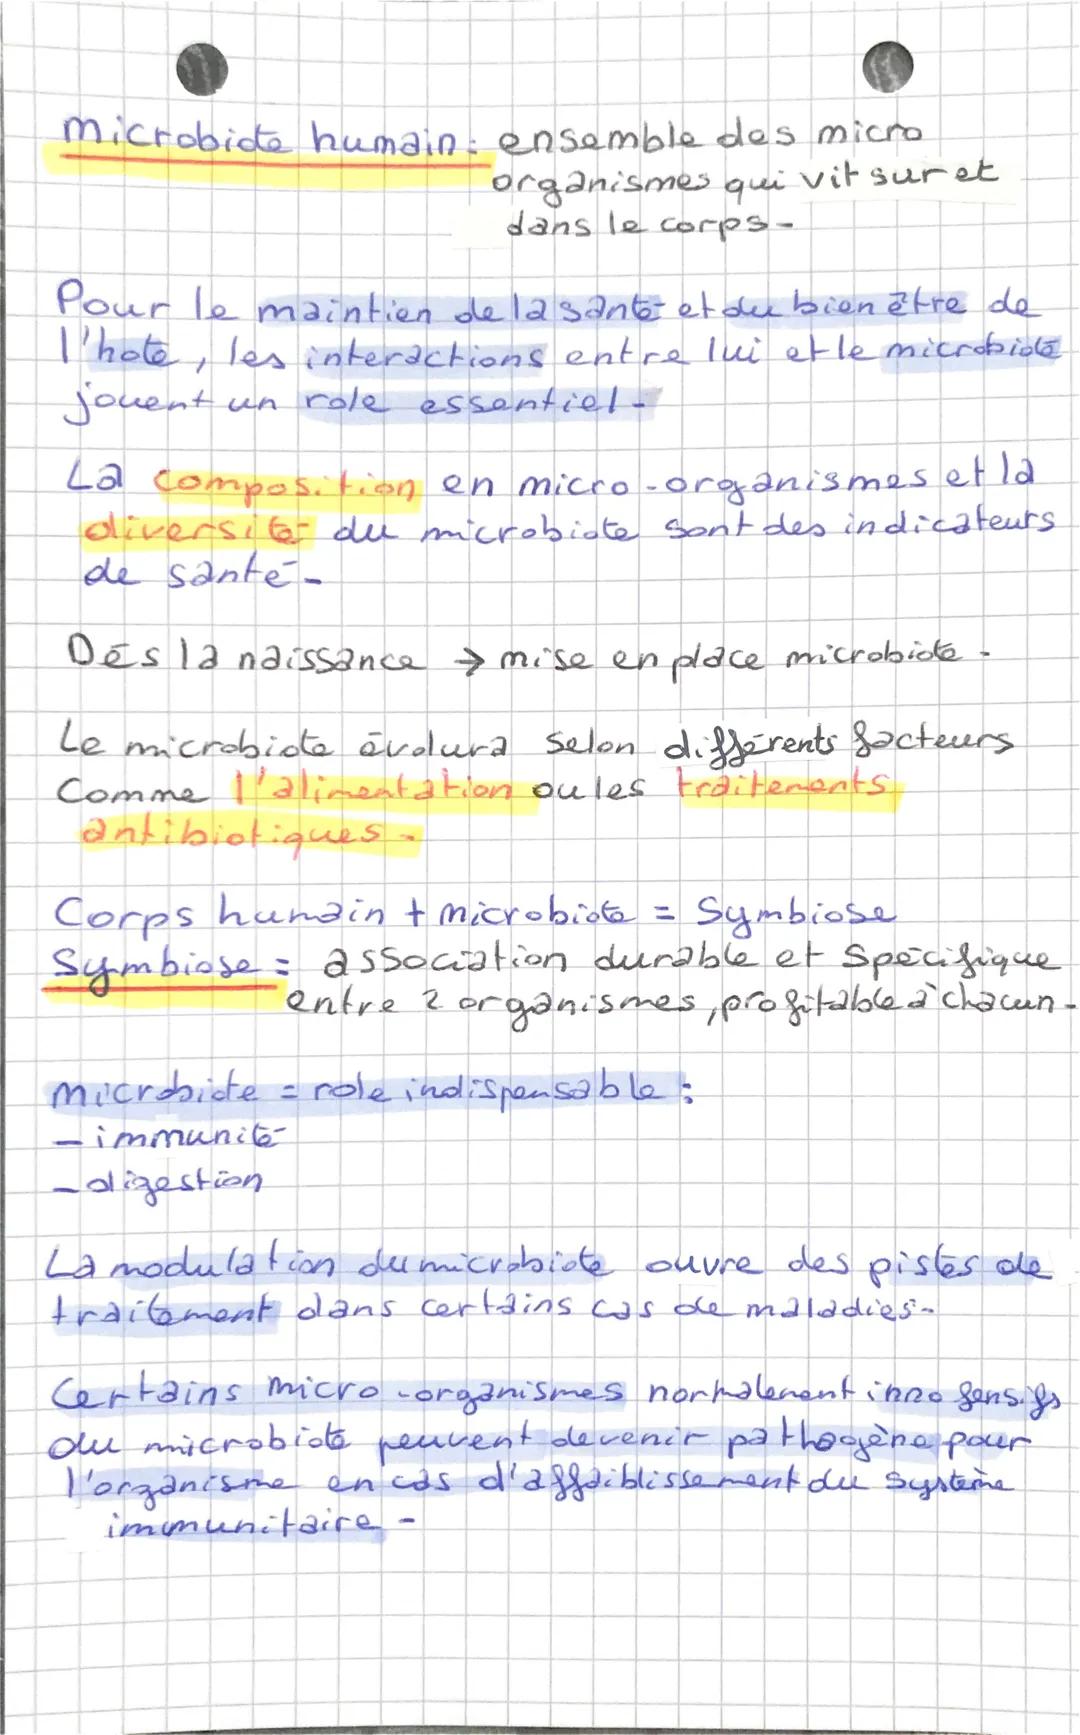 microbiote humain : ensemble des micro
organismes qui vit sur et
dans le corps -
Pour le maintien de la santé et du bien être de
l'hote, les interactions entre lui et le microbiote
jouent un role essentiel -
La composition en micro-organismes et la
diversité du microbiote sont des indicateurs
de santé -
Dés la naissance → mise en place microbiote -
Le microbiote évolura selon différents facteurs
Comme l'alimentation ou les traitements
antibiotiques -
Corps humain + microbiote = Symbiose
Symbiose = association durable et Spécifique
entre 2 organismes, profitable à chacun -
microbiote = role indispensable :
- immunité
- digestion
La modulation du microbiote ouvre des pistes de
traitement dans certains cas de maladies -
Certains micro-organismes normalement innofensifs
du microbiote peuvent devenir pathogène pour
l'organisme en cas d'affaiblissement du Système
immunitaire -